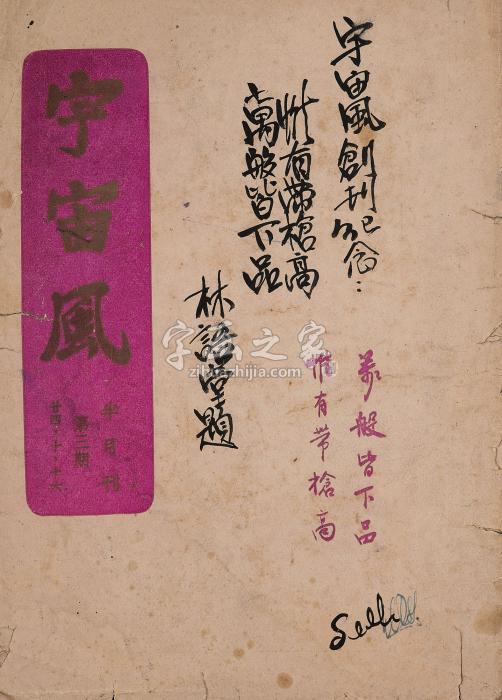 宇宙風創刊紀念：
惟有帶槍高
萬般皆下品
林語堂題
萬般皆下品
惟有带槍高
宇宙風
半月刊
第三期
廿四·十·十六
字画之家
zihuazhijia.com